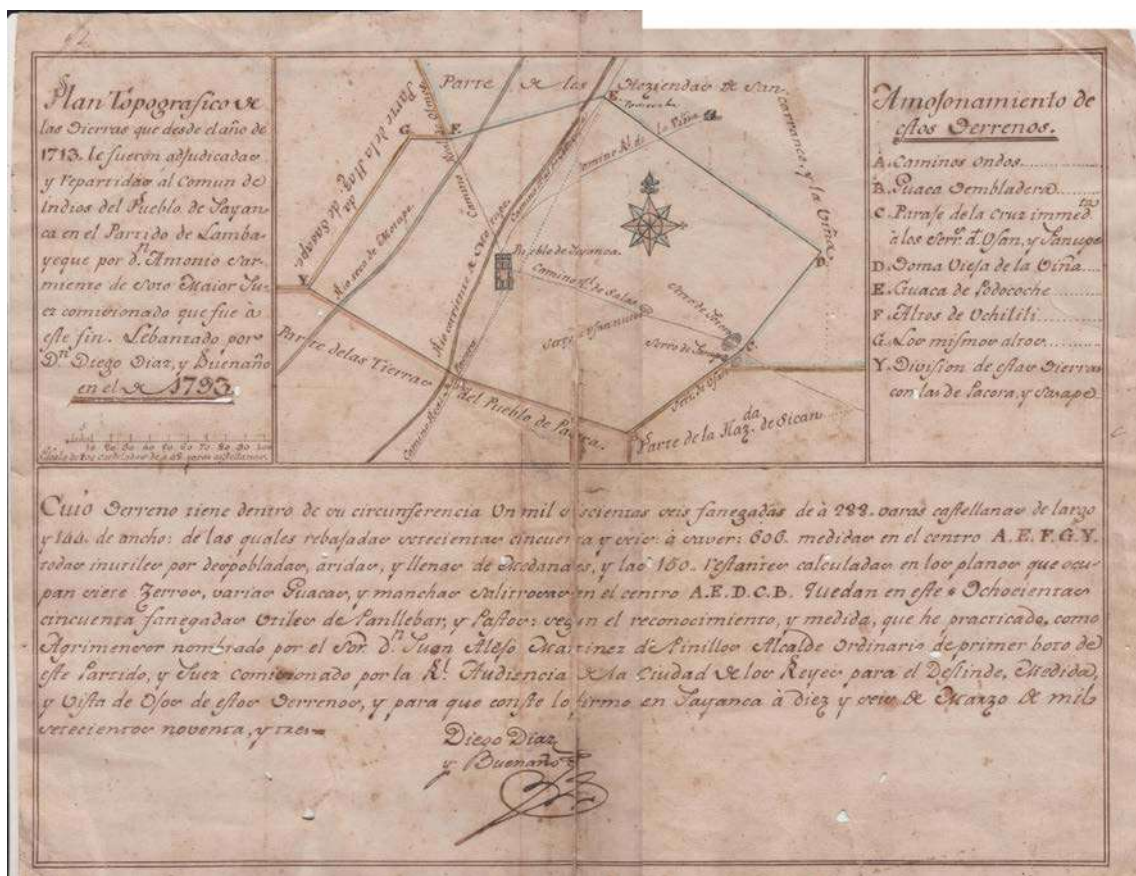 Plan Topografico de
las Tierras que desde el año de
1713. le fueron adjudicadas
y repartidas al Comun de
Indios del Pueblo de Jayan-
ca en el Partido de Lamba-
yeque por Dn. Antonio Sar-
miento de Soto Maior Ju-
ez comisionado que fue à
este fin. Lebantado por
Dn. Diego Diaz, y Buenaño
en el de 1793.
10 20 30 40 50 60 70 80 90 100
Parte de las Haziendas de San
carranco, y la Viña
Parte de la Haz.da de Sasape
G
F
E
Rio seco de Motupe
Camino
Camino Rl. de la Viña
Rio corriente de Motupe
Pueblo de Jayanca
Camino Rl. de Salas
D
Y
Serro de
C
Parte de las Tierras del Pueblo de Pacora
Camino Real
B
Parte de la Haz.da de Sican
Amojonamiento de
estos Terrenos.
A. Caminos ondos
B. Guaca Sembladera
C. Paraje de la Cruz immed.ta
à los Serr.s d. Ofan, y Sanupe
D. Toma Vieja de la Viña
E. Guaca de Podocoche
F. Altos de Uchilili
G. Los mismos altos
Y. Division de estas Tierras
con las de Pacora, y Sasape
Cuio Terreno tiene dentro de su circunferencia Un mil seiscientas seis fanegadas de à 288. varas castellanas de largo
y 144. de ancho: de las quales rebajadas setecientas cincuenta y seis: à saver: 606. medidas en el centro A.E.F.G.Y.
todas inutiles por despobladas, áridas, y llenas de Medanales, y las 150. restantes calculadas en los planos que ocu-
pan siete Zerros, varias Guacas, y manchas salitrosas en el centro A.E.D.C.B. Quedan en este Ochocientas
cincuenta fanegadas utiles de Panllebar, y Pastos: segun el reconocimiento, y medida, que he practicado, como
Agrimensor nombrado por el Sor. Dn. Juan Alejo Martinez de Pinillos Alcalde Ordinario de primer boto de
este Partido, y Juez comisionado por la Rl. Audiencia de la Ciudad de los Reyes para el Deslinde, Medida,
y Vista de Ojos de estos Terrenos, y para que conste lo firmo en Jayanca à diez y seis de Marzo de mil
setecientos noventa, y tres=
Diego Diaz
y Buenaño